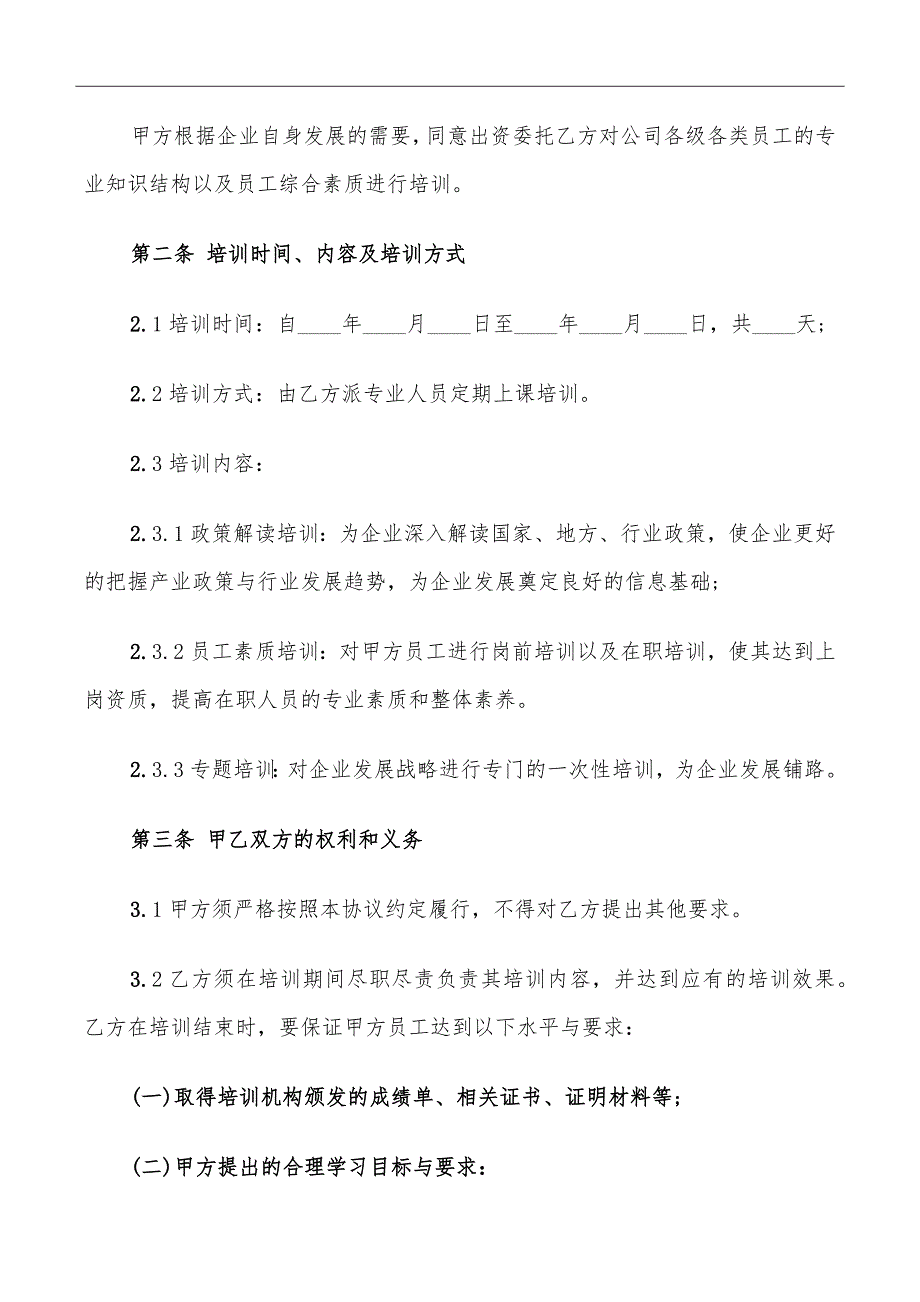 甲方根据企业自身发展的需要,同意出资委托乙方对公司各级各类员工的专
业知识结构以及员工综合素质进行培训。
第二条 培训时间、内容及培训方式
2.1培训时间:自____年____月____日至____年____月____日,共____天;
2.2培训方式:由乙方派专业人员定期上课培训。
2.3培训内容:
2.3.1政策解读培训:为企业深入解读国家、地方、行业政策,使企业更好
的把握产业政策与行业发展趋势,为企业发展奠定良好的信息基础;
2.3.2员工素质培训:对甲方员工进行岗前培训以及在职培训,使其达到上
岗资质,提高在职人员的专业素质和整体素养。
2.3.3专题培训:对企业发展战略进行专门的一次性培训,为企业发展铺路。
第三条 甲乙双方的权利和义务
3.1甲方须严格按照本协议约定履行,不得对乙方提出其他要求。
3.2乙方须在培训期间尽职尽责负责其培训内容,并达到应有的培训效果。
乙方在培训结束时,要保证甲方员工达到以下水平与要求:
(一)取得培训机构颁发的成绩单、相关证书、证明材料等;
(二)甲方提出的合理学习目标与要求: